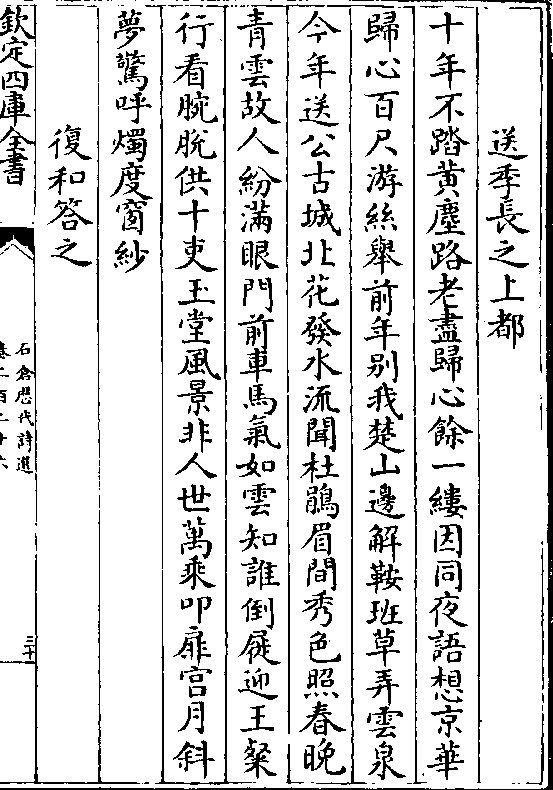 送季長之上都
十年不踏黃塵路老盡歸心餘一縷因同夜語想京華
歸心百尺游絲舉前年别我楚山邊解鞍班草弄雲泉
今年送公古城北花發水流聞杜鵑眉間秀色照春晚
青雲故人紛滿眼門前車馬氣如雲知誰倒屐迎王粲
行看腕脫供十吏玉堂風景非人世萬乘叩扉宫月斜
夢驚呼燭度窗紗
復和答之
欽定四庫全書
石倉歴代詩選
卷二百二十六
三十